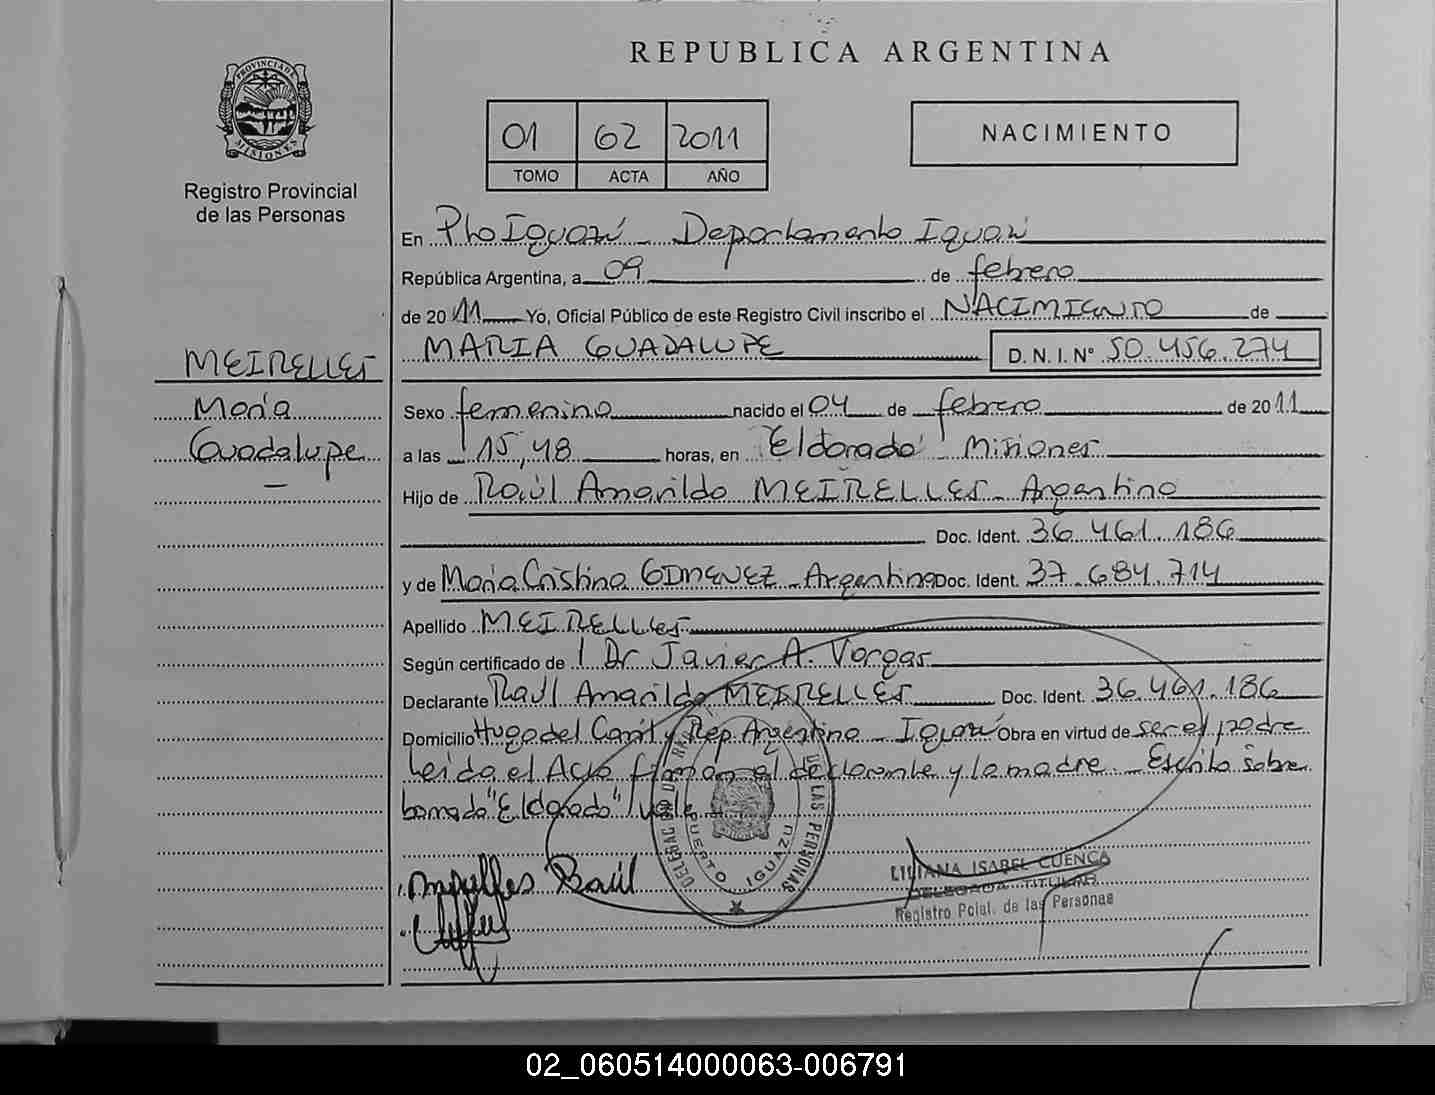 REPUBLICA ARGENTINA
PROVINCIA DE MISIONES
Registro Provincial
de las Personas
01 62 2011
TOMO ACTA AÑO
NACIMIENTO
En Pto Iguazú - Departamento Iguazú
República Argentina, a 09 de febrero
de 2011 Yo, Oficial Público de este Registro Civil inscribo el NACIMIENTO de
MARIA GUADALUPE D.N.I. Nº 50.456.274
MEIRELLES
María
Guadalupe
Sexo femenino nacido el 04 de febrero de 2011
a las 15,48 horas, en "Eldorado" Misiones
Hijo de Raúl Amarildo MEIRELLES - Argentino
Doc. Ident. 36.461.186
y de María Cristina GIMENEZ - Argentina Doc. Ident. 37.684.714
Apellido MEIRELLES
Según certificado de Dr Javier A. Vargas
Declarante Raúl Amarildo MEIRELLES Doc. Ident. 36.461.186
Domicilio Hugo del Carril y Rep Argentina - Iguazú Obra en virtud de ser el padre
Leida el Acta firman el declarante y la madre. - Escrito sobre
borrado "Eldorado" Vale
Meirelles Raúl
DE LAS PERSONAS
PUERTO IGUAZU
LILIANA ISABEL CUENCA
DELEGADA TITULAR
Registro Pcial. de las Personas
02_060514000063-006791